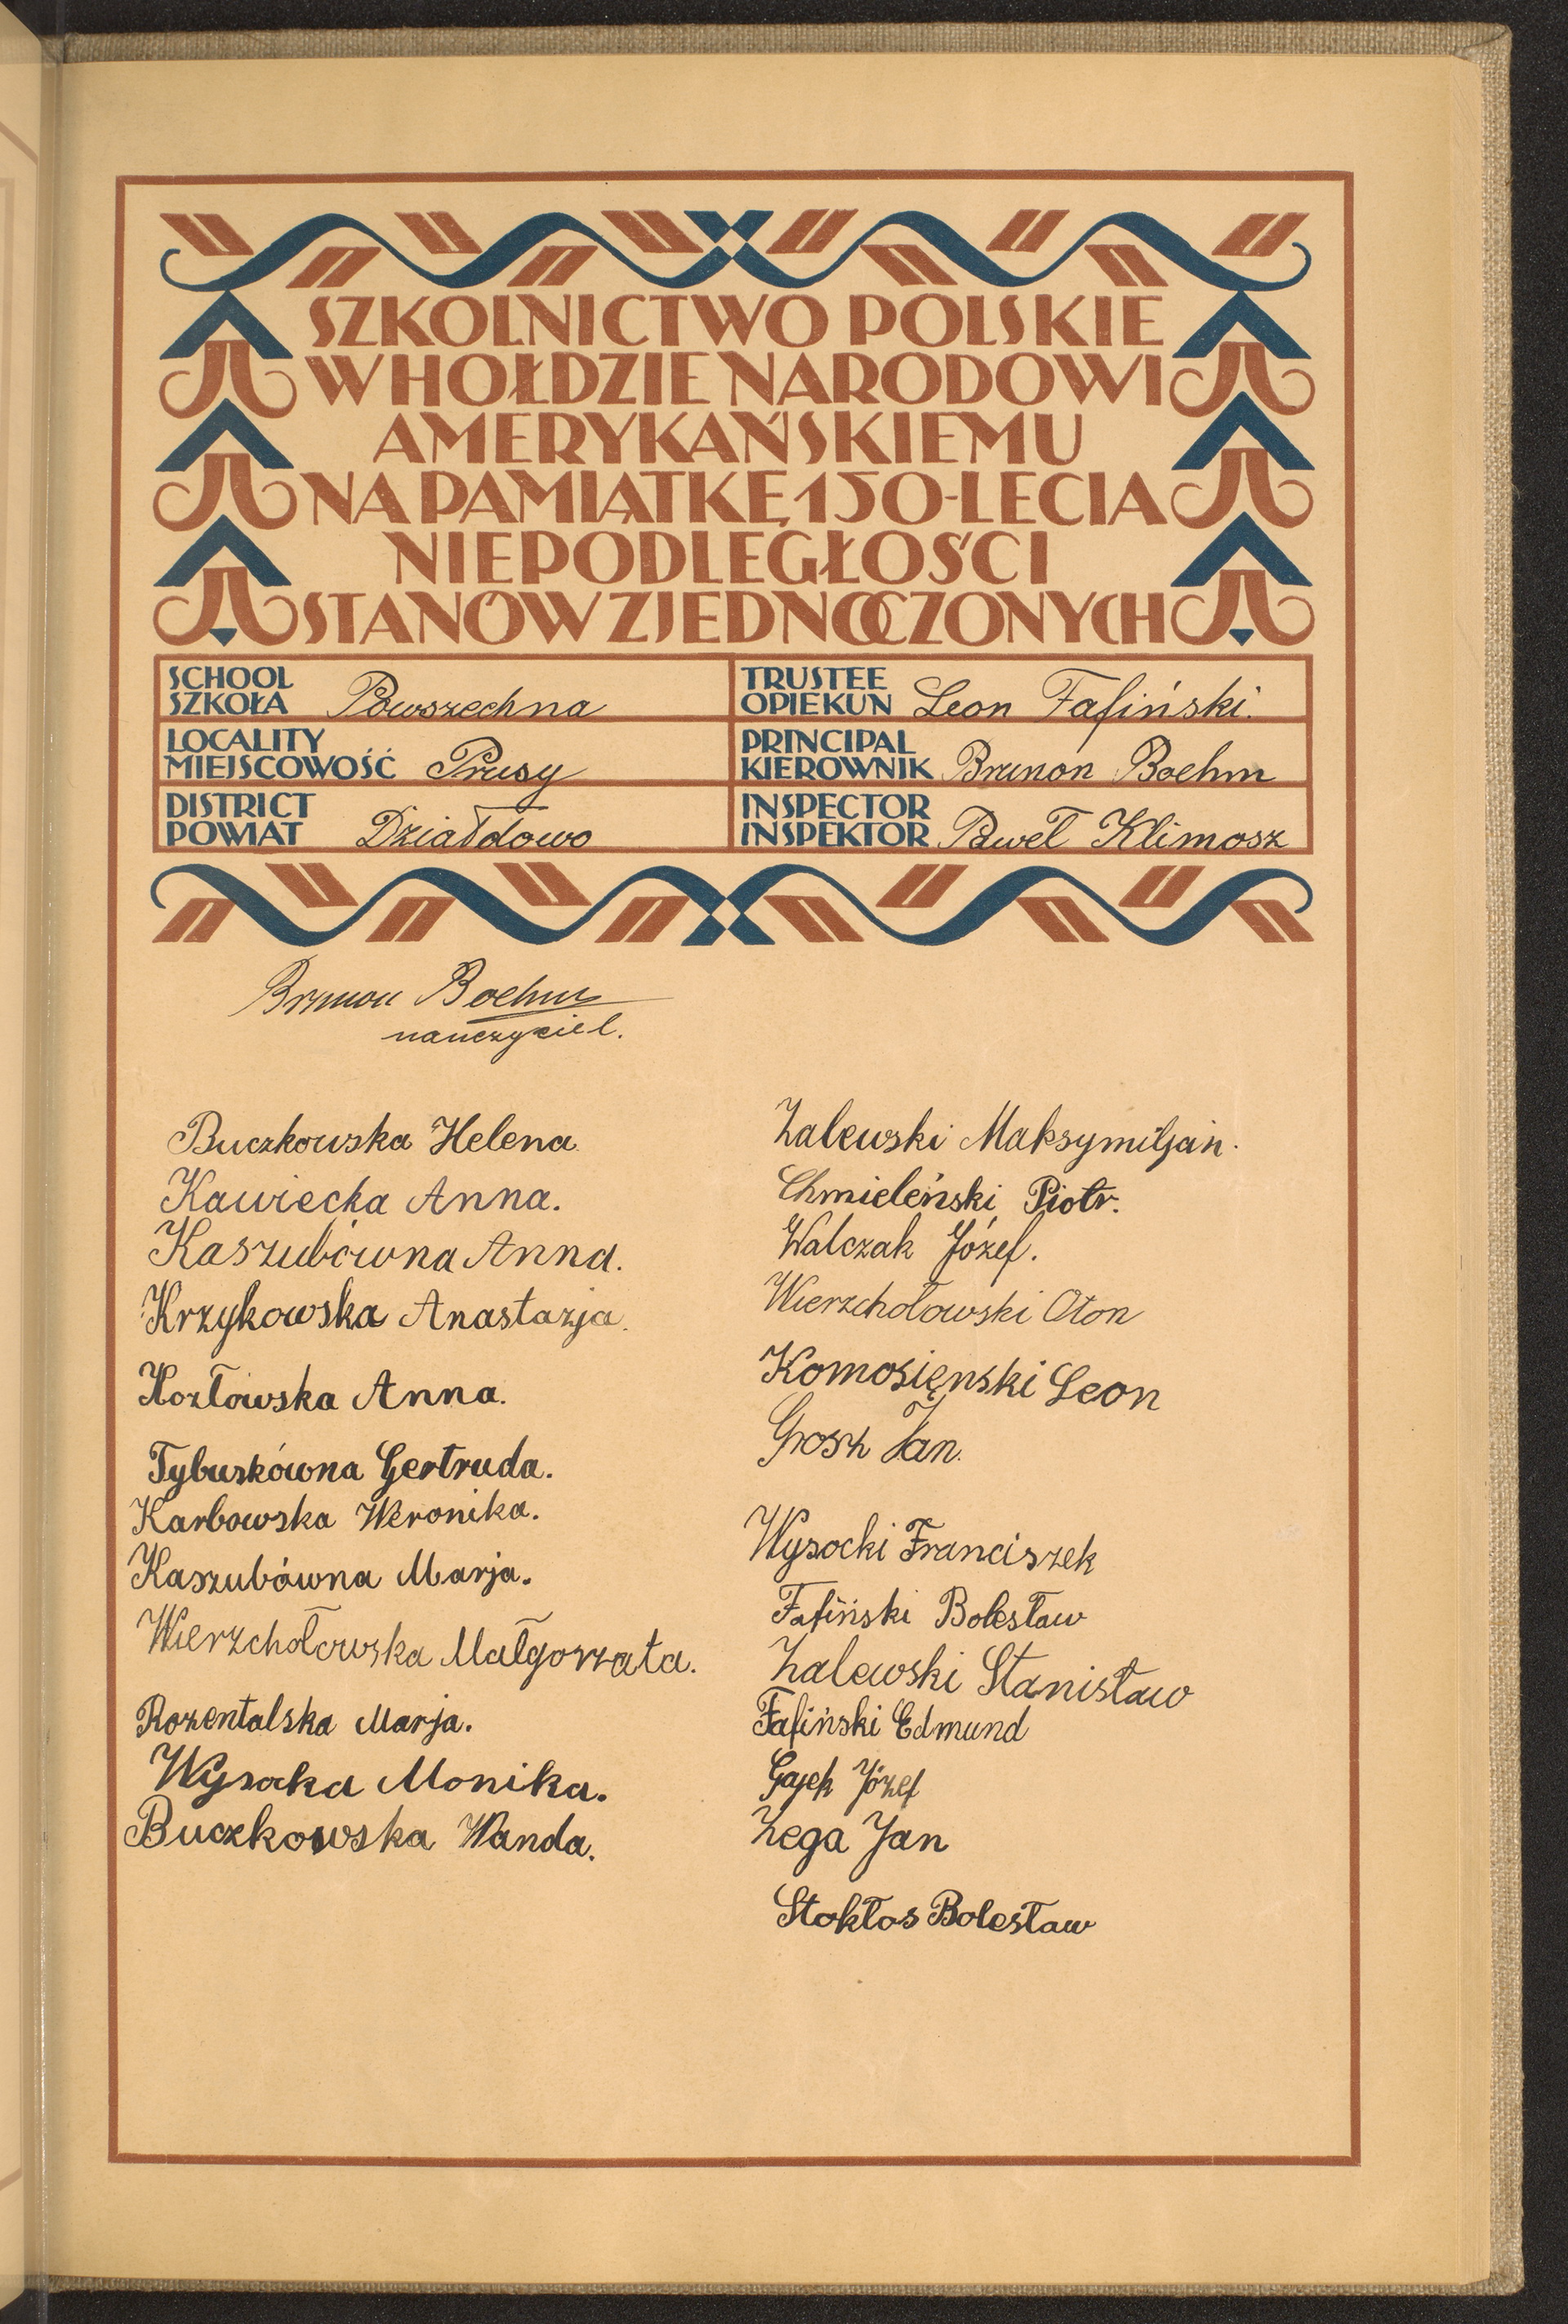 SZKOLNICTWO POLSKIE
W HOŁDZIE NARODOWI
AMERYKAŃSKIEMU
NA PAMIĄTKĘ 150-LECIA
NIEPODLEGŁOŚCI
STANÓW ZJEDNOCZONYCH
SCHOOL
SZKOŁA Powszechna
TRUSTEE
OPIEKUN Leon Fafiński.
LOCALITY
MIEJSCOWOŚĆ Prusy
PRINCIPAL
KIEROWNIK Brunon Boehm
DISTRICT
POWIAT Działdowo
INSPECTOR
INSPEKTOR Paweł Klimosz
Brunon Boehm
nauczyciel.
Buczkowska Helena.
Kawiecka Anna.
Kaszubówna Anna.
Krzykowska Anastazja.
Kozłowska Anna.
Tybuszkówna Gertruda.
Karbowska Weronika.
Kaszubówna Marja.
Wierzchołowska Małgorzata.
Rozentalska Marja.
Wysocka Monika.
Buczkowska Wanda.
Zalewski Maksymiljan.
Chmieleński Piotr.
Walczak Józef.
Wierzchołowski Oton
Komosięnski Leon
Grosz Jan.
Wysocki Franciszek
Fafiński Bolesław
Zalewski Stanisław
Fafiński Edmund
Gajek Józef
Zega Jan
Stokłos Bolesław